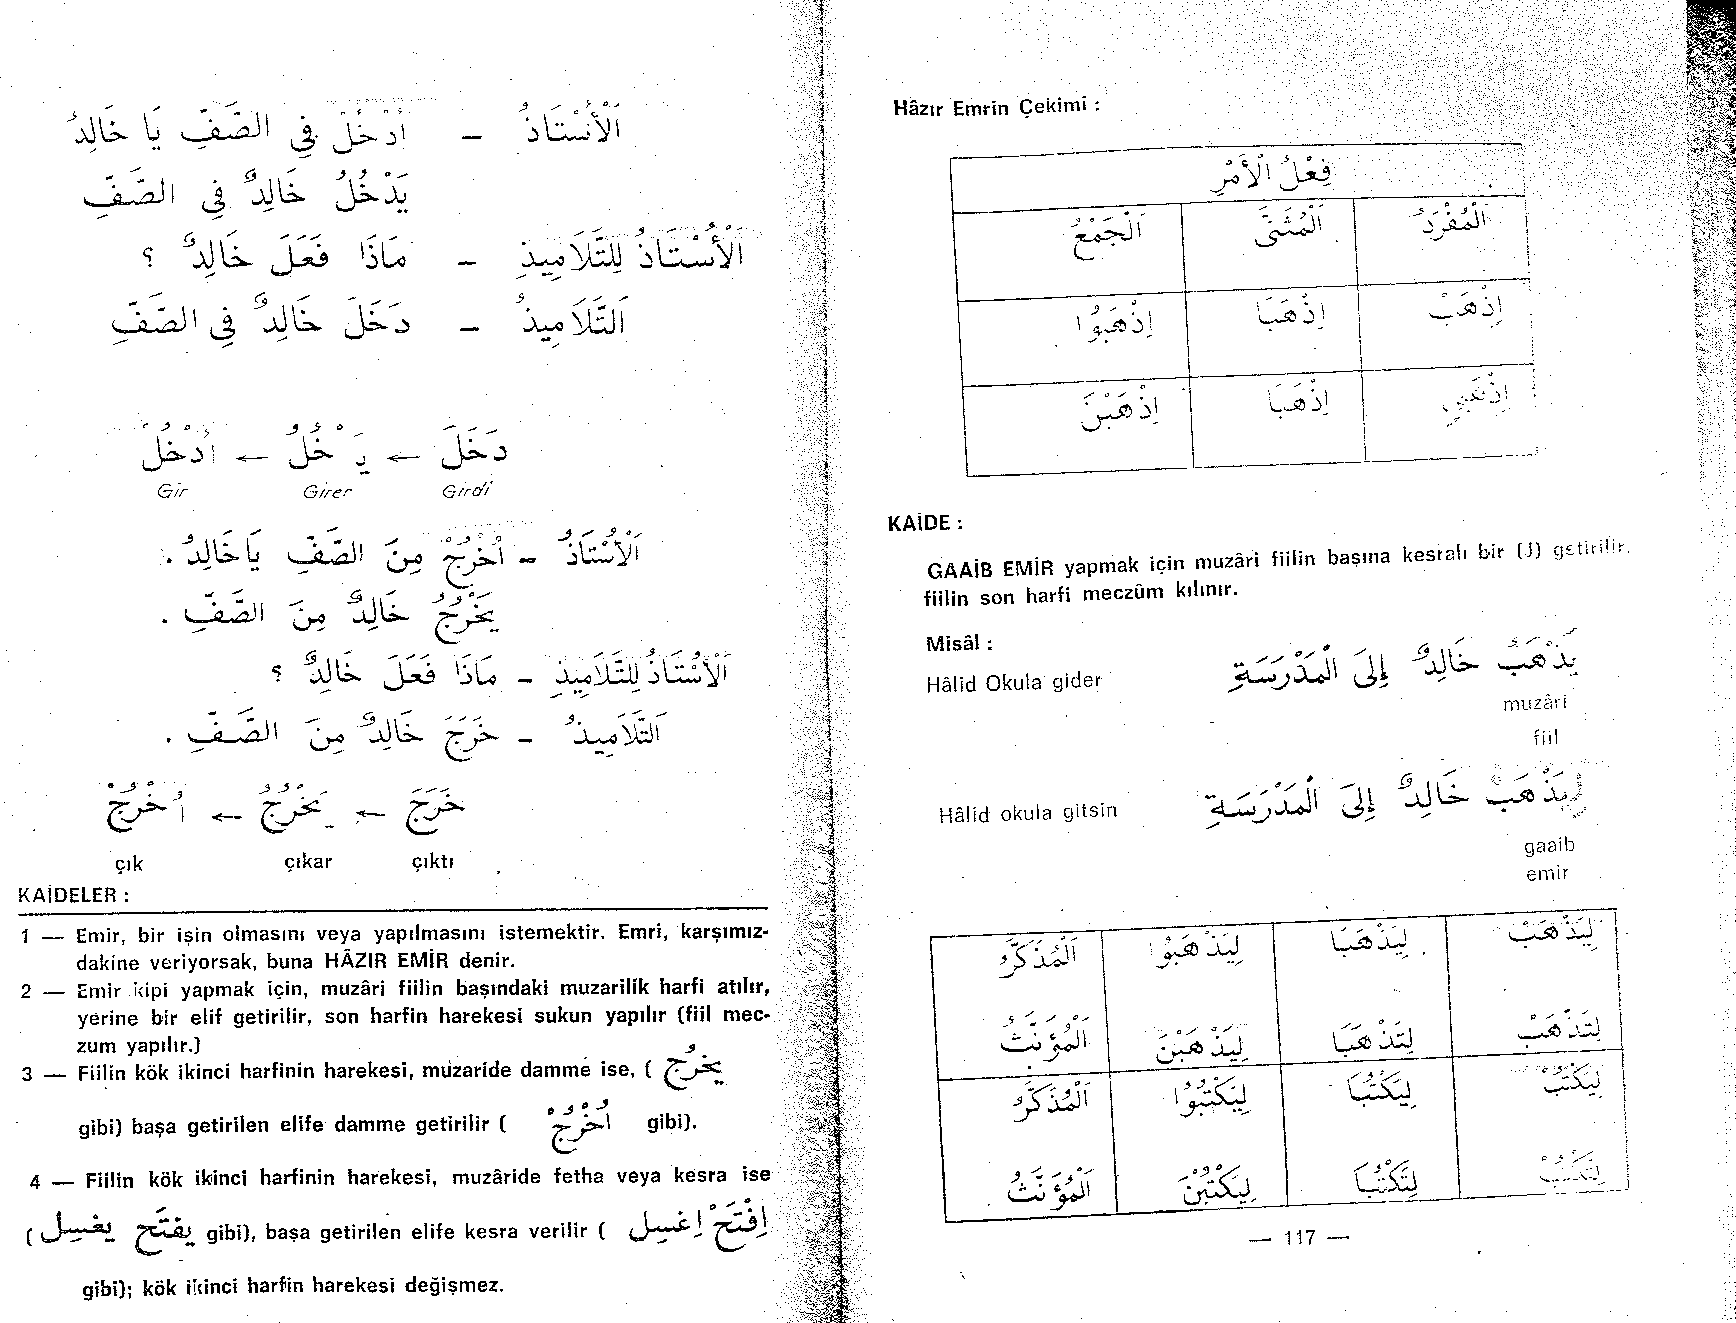 اَلْأُسْتَاذُ - اُدْخُلْ فِي الصَّفِّ يَا خَالِدُ
يَدْخُلُ خَالِدٌ فِي الصَّفِّ
اَلْأُسْتَاذُ لِلتَّلَامِيذِ - مَاذَا فَعَلَ خَالِدٌ ؟
اَلتَّلَامِيذُ - دَخَلَ خَالِدٌ فِي الصَّفِّ
دَخَلَ ← يَدْخُلُ ← اُدْخُلْ
Gir Girer Girdi
اَلْأُسْتَاذُ - اُخْرُجْ مِنَ الصَّفِّ يَا خَالِدُ .
يَخْرُجُ خَالِدٌ مِنَ الصَّفِّ .
اَلْأُسْتَاذُ لِلتَّلَامِيذِ - مَاذَا فَعَلَ خَالِدٌ ؟
اَلتَّلَامِيذُ - خَرَجَ خَالِدٌ مِنَ الصَّفِّ .
خَرَجَ ← يَخْرُجُ ← اُخْرُجْ
çık çıkar çıktı
KAİDELER :
1 — Emir, bir işin olmasını veya yapılmasını istemektir. Emri, karşımız-
dakine veriyorsak, buna HÂZIR EMİR denir.
2 — Emir kipi yapmak için, muzâri fiilin başındaki muzarilik harfi atılır,
yerine bir elif getirilir, son harfin harekesi sukun yapılır (fiil mec-
zum yapılır.)
3 — Fiilin kök ikinci harfinin harekesi, muzaride damme ise, ( يخرُج
gibi) başa getirilen elife damme getirilir ( اُخْرُجْ gibi).
4 — Fiilin kök ikinci harfinin harekesi, muzâride fetha veya kesra ise
( يغسِل يفتَح gibi), başa getirilen elife kesra verilir ( اِفْتَحْ اِغسِل
gibi); kök ikinci harfin harekesi değişmez.
Hâzır Emrin Çekimi :
فِعْلُ الْأَمْرِ
اَلْمُفْرَدُ اَلْمُثَنَّى اَلْجَمْعُ
اِذْهَبْ اِذْهَبَا اِذْهَبُوا
اِذْهَبِي اِذْهَبَا اِذْهَبْنَ
KAİDE :
GAAİB EMİR yapmak için muzâri fiilin başına kesralı bir (J) getirilir,
fiilin son harfi meczûm kılınır.
Misâl :
Hâlid Okula gider يَذْهَبُ خَالِدٌ إِلَى الْمَدْرَسَةِ
muzâri
fiil
Hâlid okula gitsin لِيَذْهَبْ خَالِدٌ إِلَى الْمَدْرَسَةِ
gaaib
emir
لِيَذْهَبْ لِيَذْهَبَا لِيَذْهَبُوا اَلْمُذَكَّرُ
لِتَذْهَبْ لِتَذْهَبَا لِيَذْهَبْنَ اَلْمُؤَنَّثُ
لِيَكْتُبْ لِيَكْتُبَا لِيَكْتُبُوا اَلْمُذَكَّرُ
لِتَكْتُبْ لِتَكْتُبَا لِيَكْتُبْنَ اَلْمُؤَنَّثُ
— 117 —